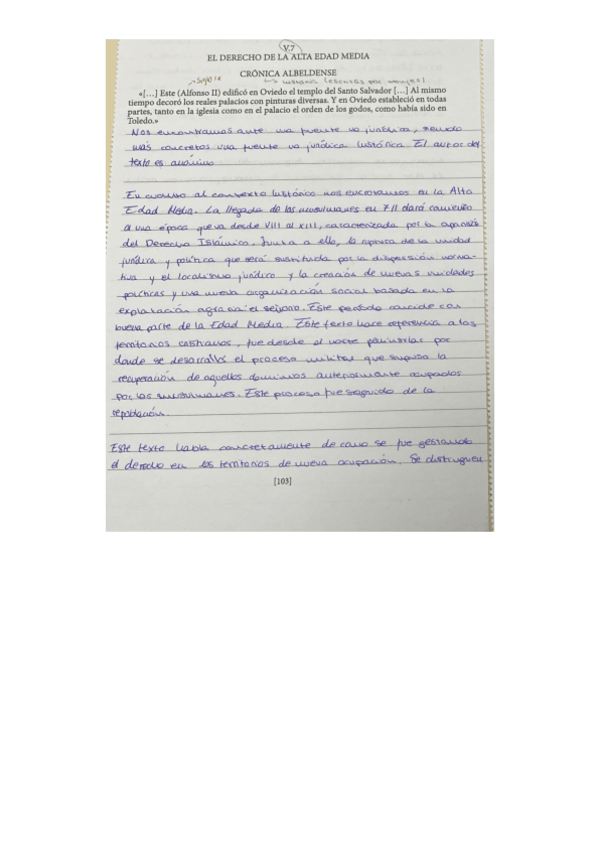 V.7
EL DERECHO DE LA ALTA EDAD MEDIA
CRÓNICA ALBELDENSE
Siglo IX
historia (escritas por monjes)
«[…] Este (Alfonso II) edificó en Oviedo el templo del Santo Salvador […] Al mismo
tiempo decoró los reales palacios con pinturas diversas. Y en Oviedo estableció en todas
partes, tanto en la iglesia como en el palacio el orden de los godos, como había sido en
Toledo.»
Nos encontramos ante una fuente no jurídica, siendo
más concretos una fuente no jurídica histórica. El autor del
texto es anónimo
En cuanto al contexto histórico nos encontramos en la Alta
Edad Media. La llegada de los musulmanes en 711 dará comienzo
a una época que va desde VIII al XIII, caracterizada por la aparición
del Derecho Islámico. Junto a ello, la ruptura de la unidad
jurídica y política que será sustituida por la dispersión norma-
tiva y el localismo jurídico y la creación de nuevas unidades
políticas y una nueva organización social basada en la
explotación agraria: el señorío. Este periodo coincide con
buena parte de la Edad Media. Este texto hace referencia a los
territorios cristianos, fue desde el norte peninsular por
donde se desarrolló el proceso militar que supuso la
recuperación de aquellos dominios anteriormente ocupados
por los musulmanes. Este proceso fue seguido de la
repoblación.
Este texto habla concretamente de como se fue gestando
el derecho en los territorios de nueva ocupación. Se distinguen
[103]